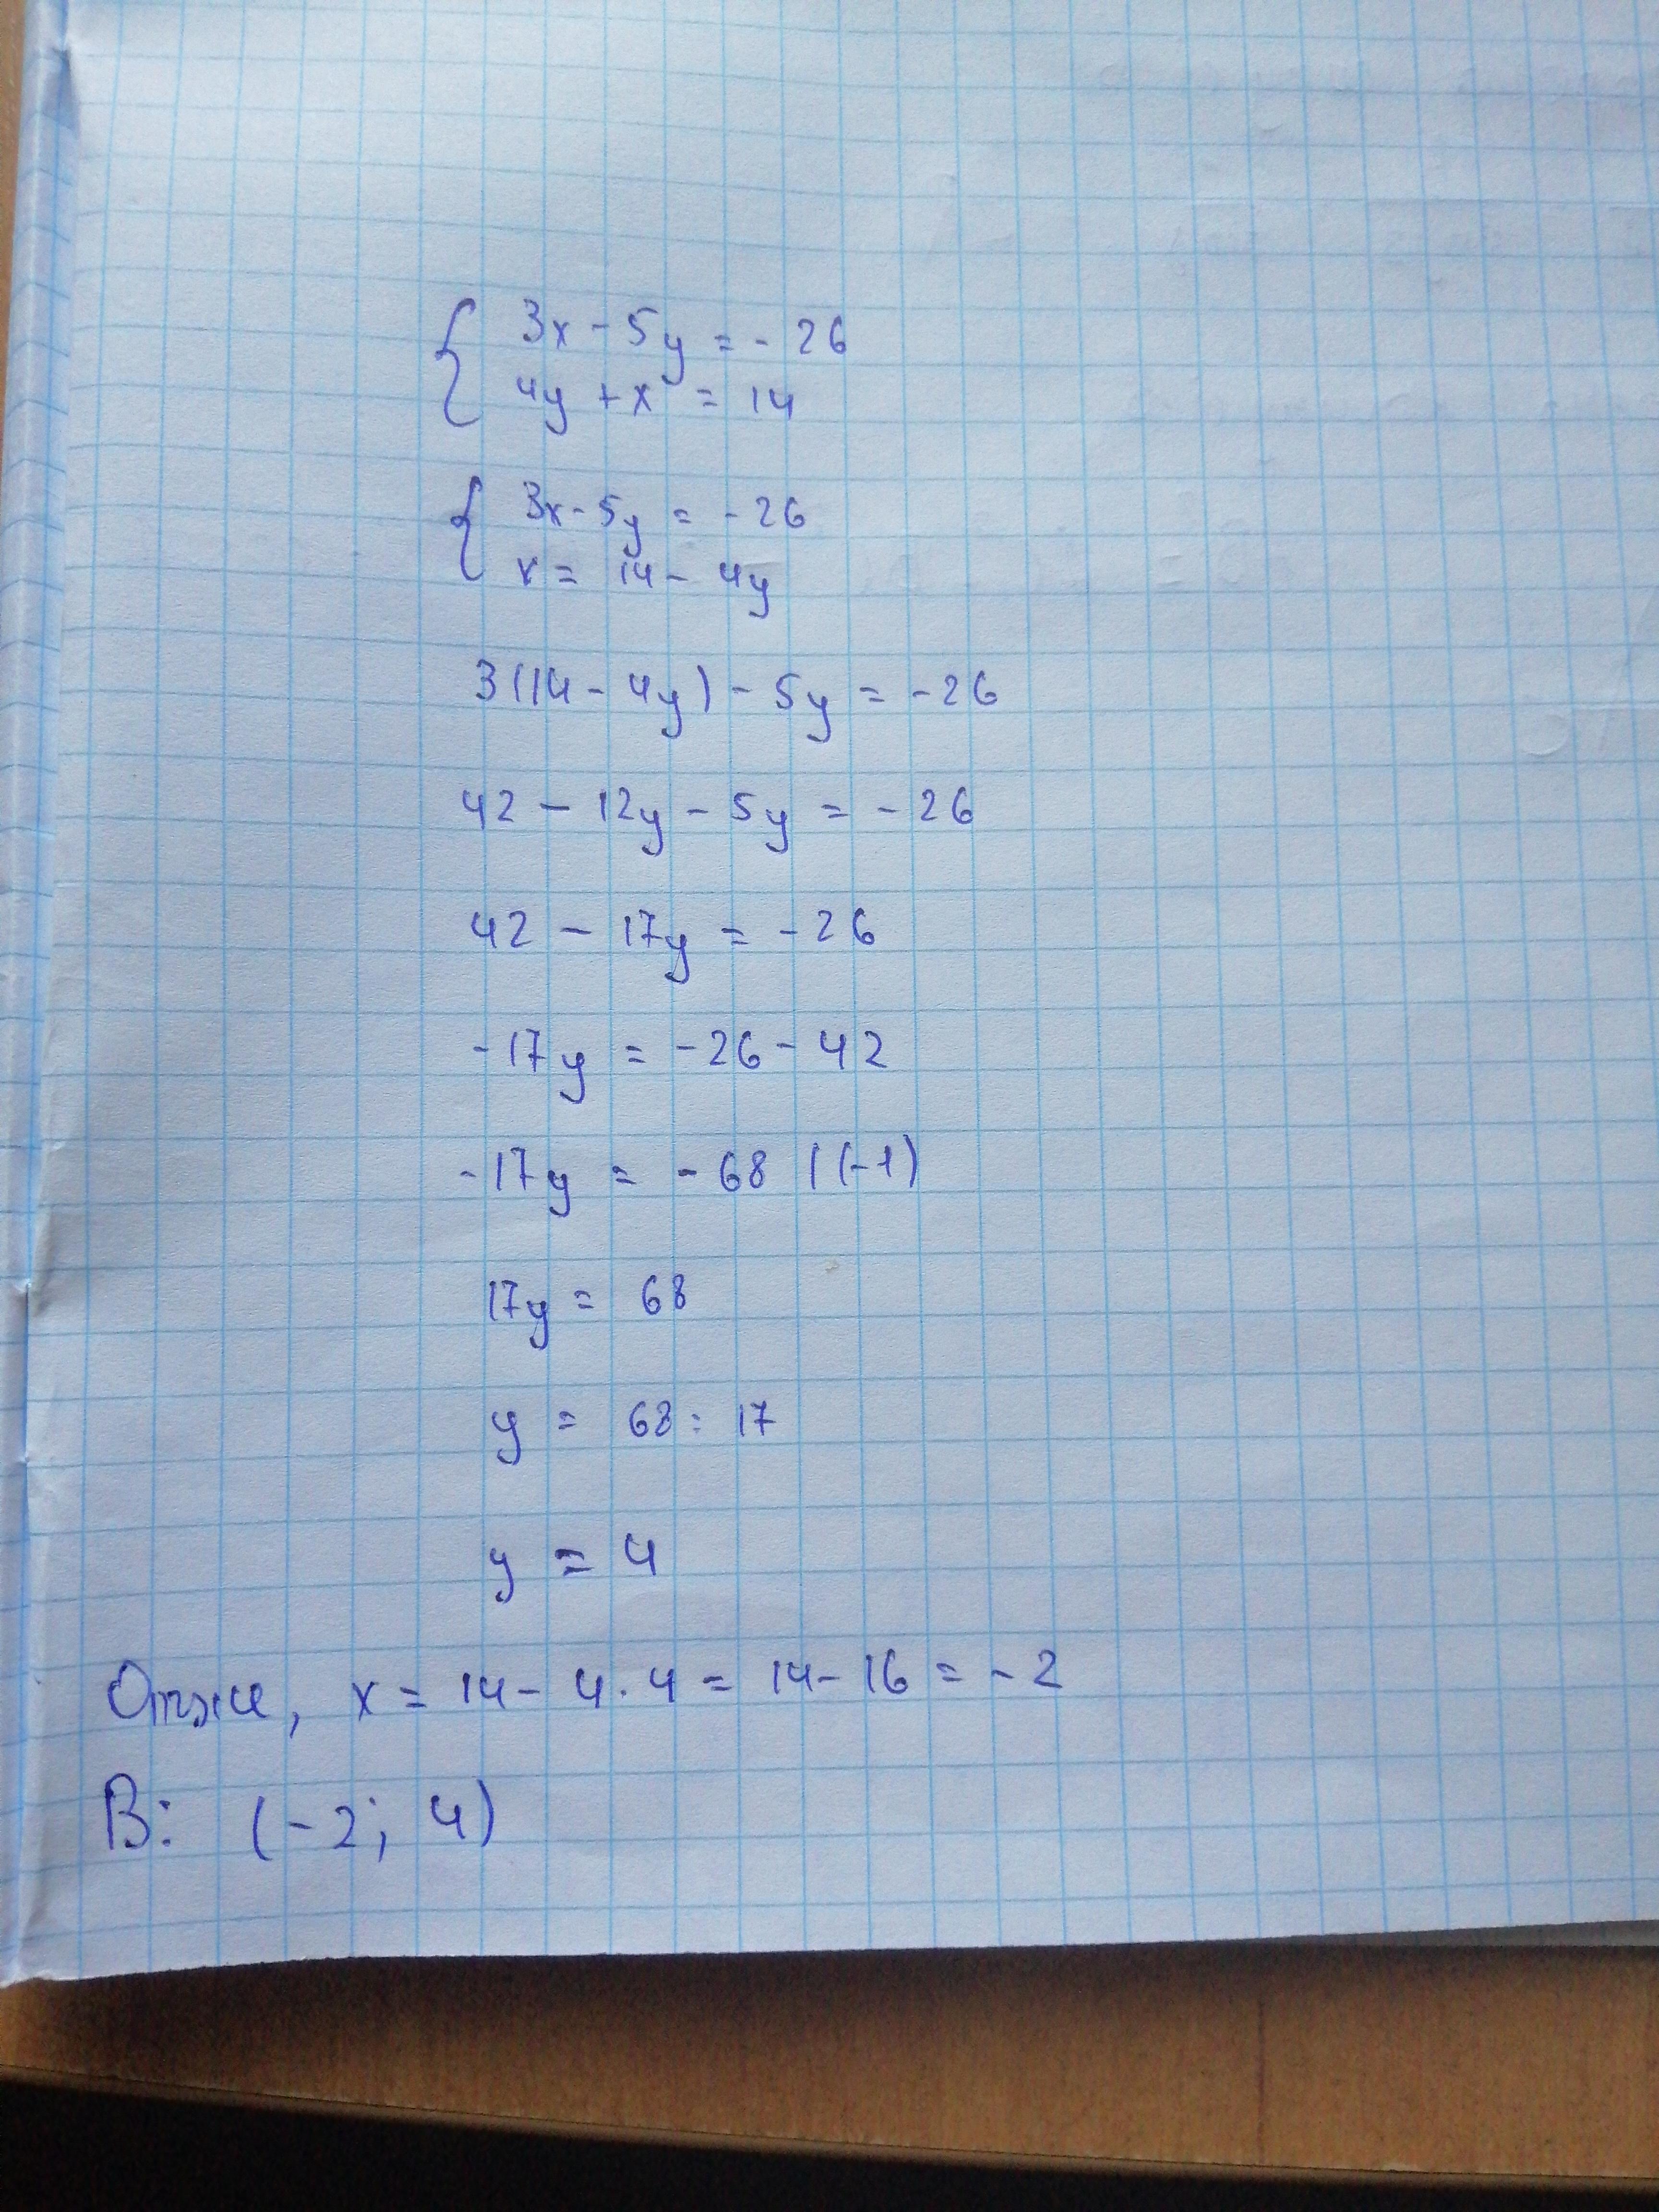 3x - 5y = - 26
4y + x = 14
3x - 5y = - 26
x = 14 - 4y
3(14 - 4y) - 5y = -26
42 - 12y - 5y = - 26
42 - 17y = - 26
-17y = -26 - 42
-17y = - 68 | (-1)
17y = 68
y = 68 : 17
y = 4
Отже, x = 14 - 4 · 4 = 14 - 16 = - 2
В: (-2; 4)